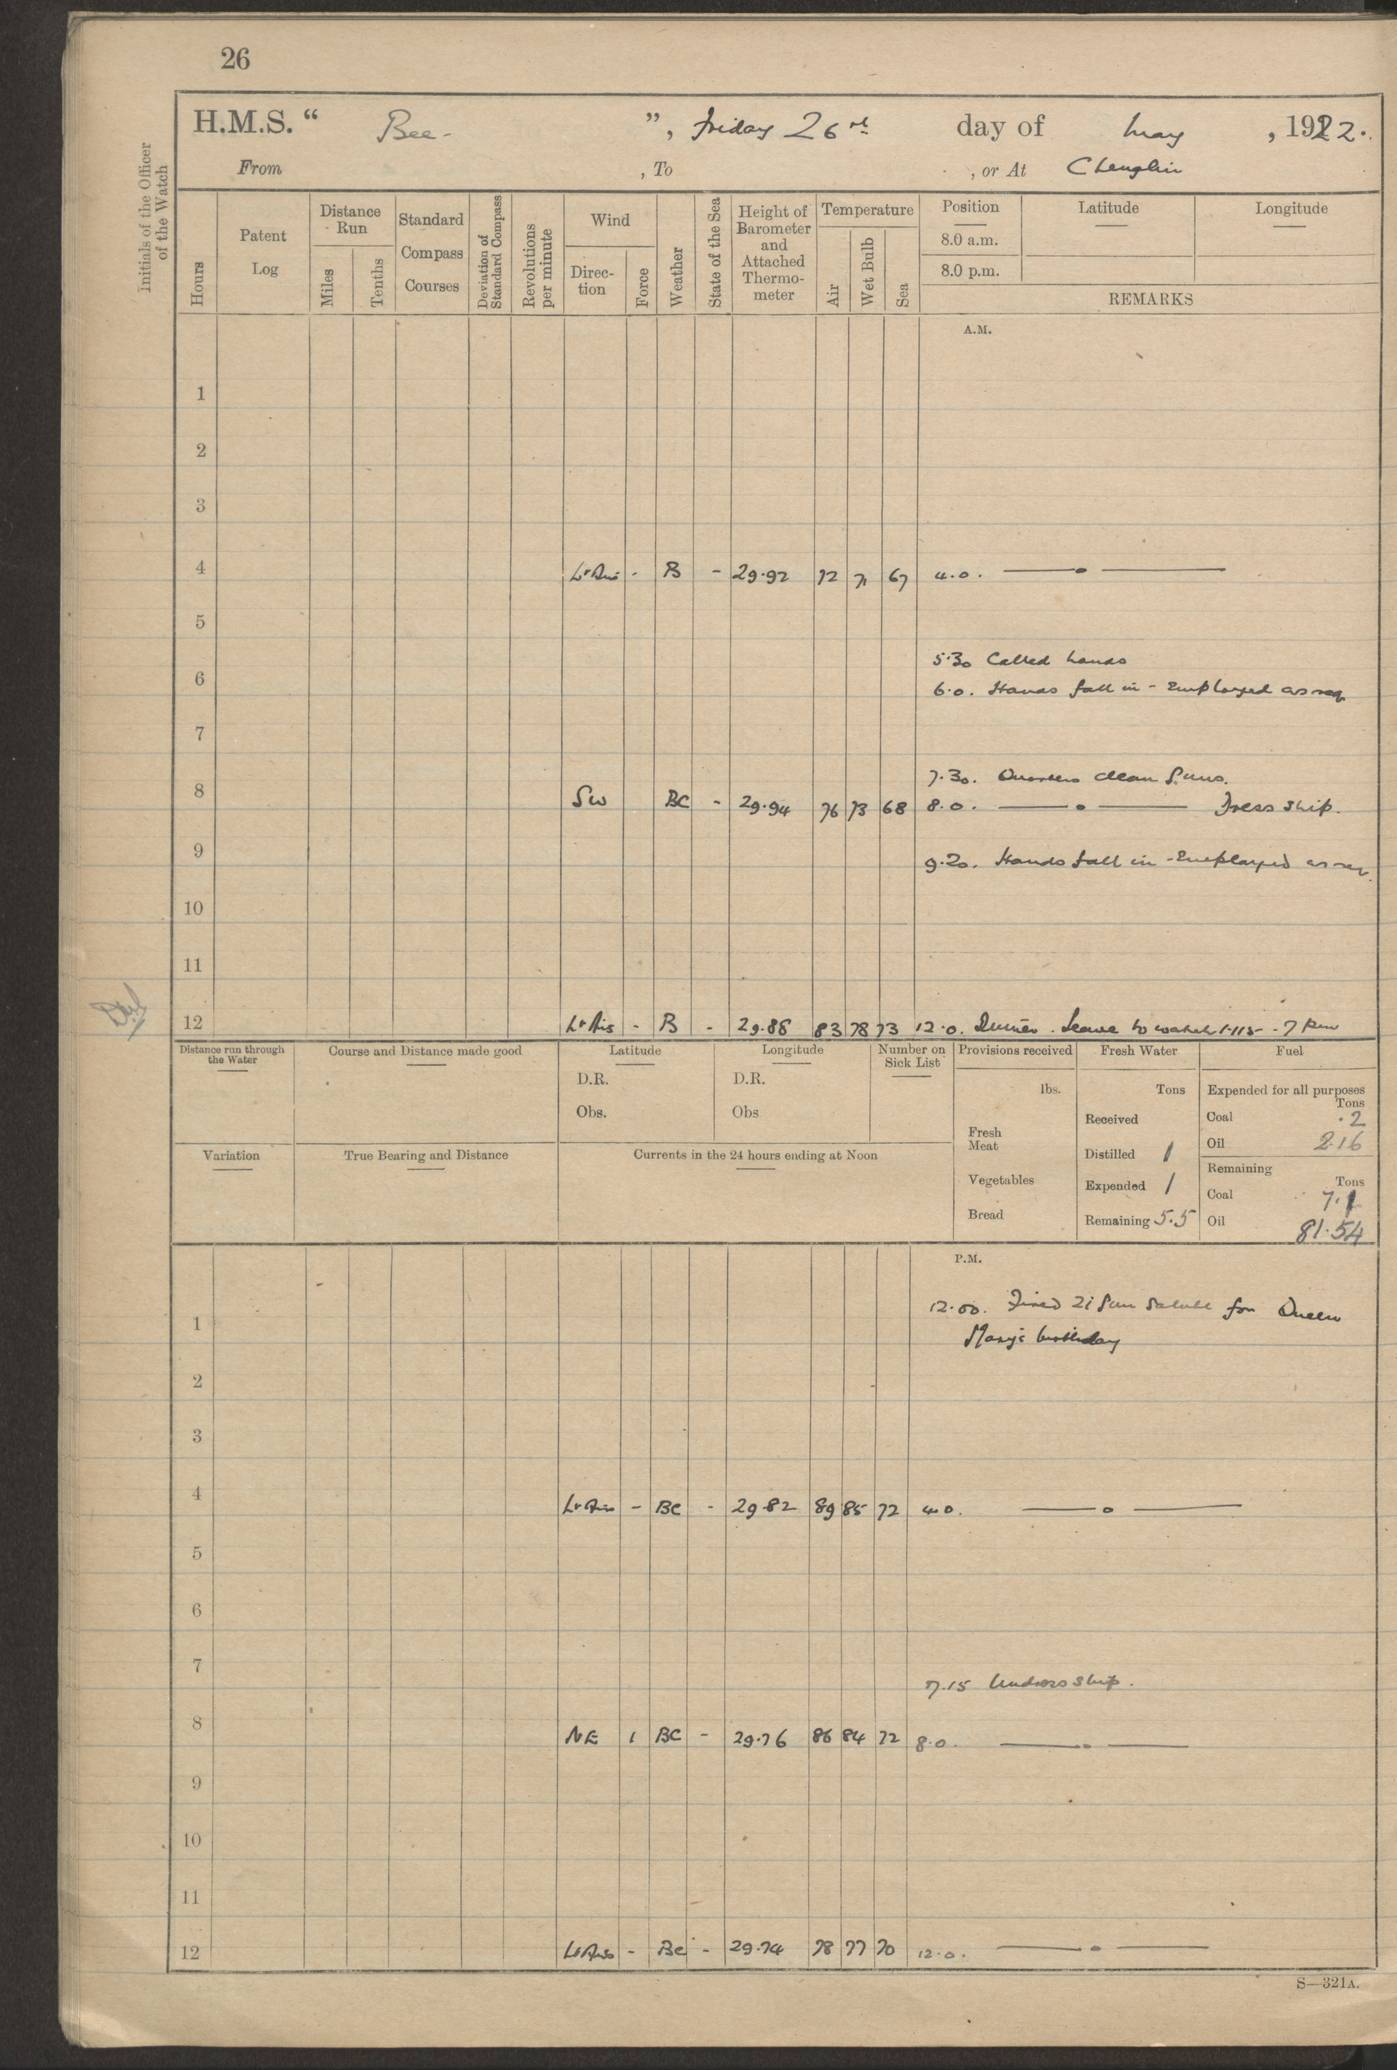 26
H.M.S. “ Bee - ”, Friday 26th day of May , 1922.
From , To , or At Chenglin
Initials of the Officer of the Watch
Hours
Patent Log
Distance Run
Miles
Tenths
Standard Compass Courses
Deviation of Standard Compass
Revolutions per minute
Wind
Direc-tion
Force
Weather
State of the Sea
Height of Barometer and Attached Thermo-meter
Temperature
Air
Wet Bulb
Sea
Position
8.0 a.m.
8.0 p.m.
Latitude
Longitude
REMARKS
A.M.
1
2
3
4 Lt Airs - B - 29.92 72 71 67 4.0. —— o ——
5
5.30 Called hands
6 6.0. Hands fall in - Employed as req
7
7.30. Quarters clean Guns.
8 SW BC - 29.94 76 73 68 8.0. —— o —— Dress ship.
9 9.20. Hands fall in - Employed as req.
10
11
12 Lt Airs - B - 29.86 83 78 73 12.0. Dinner. Leave to watch 1.15 - 7 pm
Distance run through the Water
Course and Distance made good
Latitude
D.R.
Obs.
Longitude
D.R.
Obs
Number on Sick List
Variation
True Bearing and Distance
Currents in the 24 hours ending at Noon
Provisions received
lbs.
Fresh Meat
Vegetables
Bread
Fresh Water
Tons
Received
Distilled 1
Expended 1
Remaining 5.5
Fuel
Expended for all purposes
Tons
Coal .2
Oil 2.16
Remaining
Tons
Coal 7.1
Oil 81.54
P.M.
12.00. Fired 21 Gun Salute for Queen
1 Mary's birthday
2
3
4 Lt Airs - BC - 29.82 89 85 72 4.0. —— o ——
5
6
7
7.15 Undress ship.
8 NE 1 BC - 29.76 86 84 72 8.0. —— o ——
9
10
11
12 Lt Airs - BC - 29.74 78 77 70 12.0. —— o ——
S—321A.